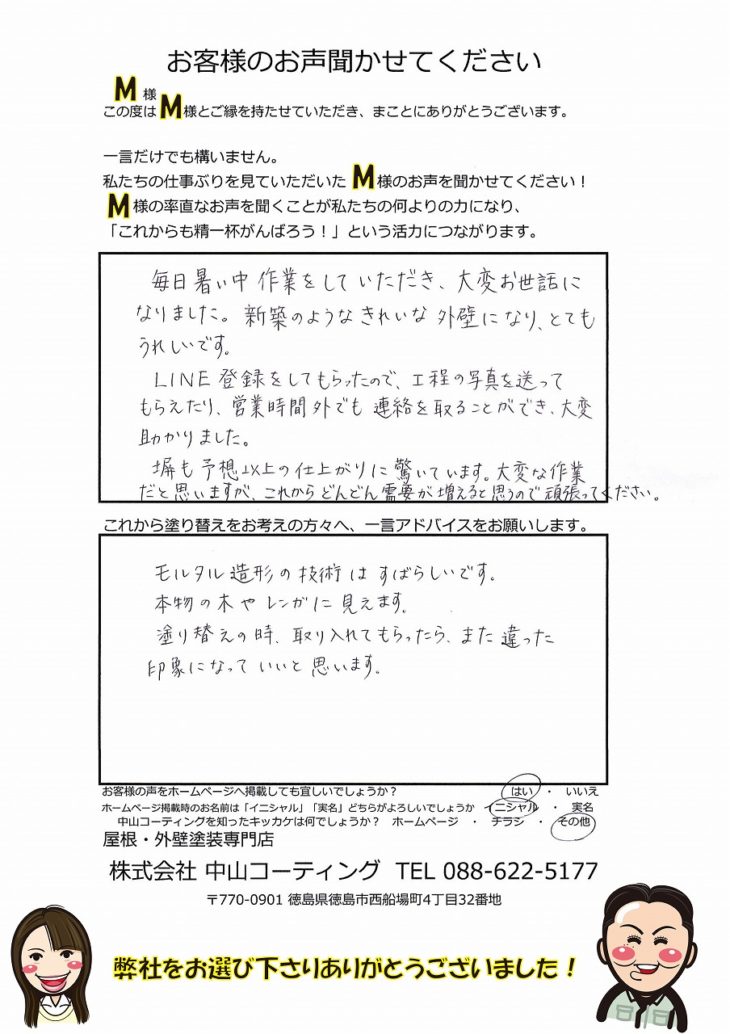 お客様のお声聞かせてください
M様
この度はM様とご縁を持たせていただき、まことにありがとうございます。
一言だけでも構いません。
私たちの仕事ぶりを見ていただいたM様のお声を聞かせてください！
M様の率直なお声を聞くことが私たちの何よりの力になり、
「これからも精一杯がんばろう！」という活力につながります。
毎日暑い中作業をしていただき、大変お世話に
なりました。新築のようなきれいな外壁になり、とても
うれしいです。
LINE登録をしてもらったので、工程の写真を送って
もらえたり、営業時間外でも連絡を取ることができ、大変
助かりました。
塀も予想以上の仕上がりに驚いています。大変な作業
だと思いますが、これからどんどん需要が増えると思うので頑張ってください。
これから塗り替えをお考えの方々へ、一言アドバイスをお願いします。
モルタル造形の技術はすばらしいです。
本物の木やレンガに見えます。
塗り替えの時、取り入れてもらったら、また違った
印象になっていいと思います。
お客様の声をホームページへ掲載しても宜しいでしょうか？ はい ・ いいえ
ホームページ掲載時のお名前は「イニシャル」「実名」どちらがよろしいでしょうか イニシャル ・ 実名
中山コーティングを知ったキッカケは何でしょうか？ ホームページ ・ チラシ ・ その他
屋根・外壁塗装専門店
株式会社 中山コーティング TEL 088-622-5177
〒770-0901 徳島県徳島市西船場町4丁目32番地
弊社をお選び下さりありがとうございました！